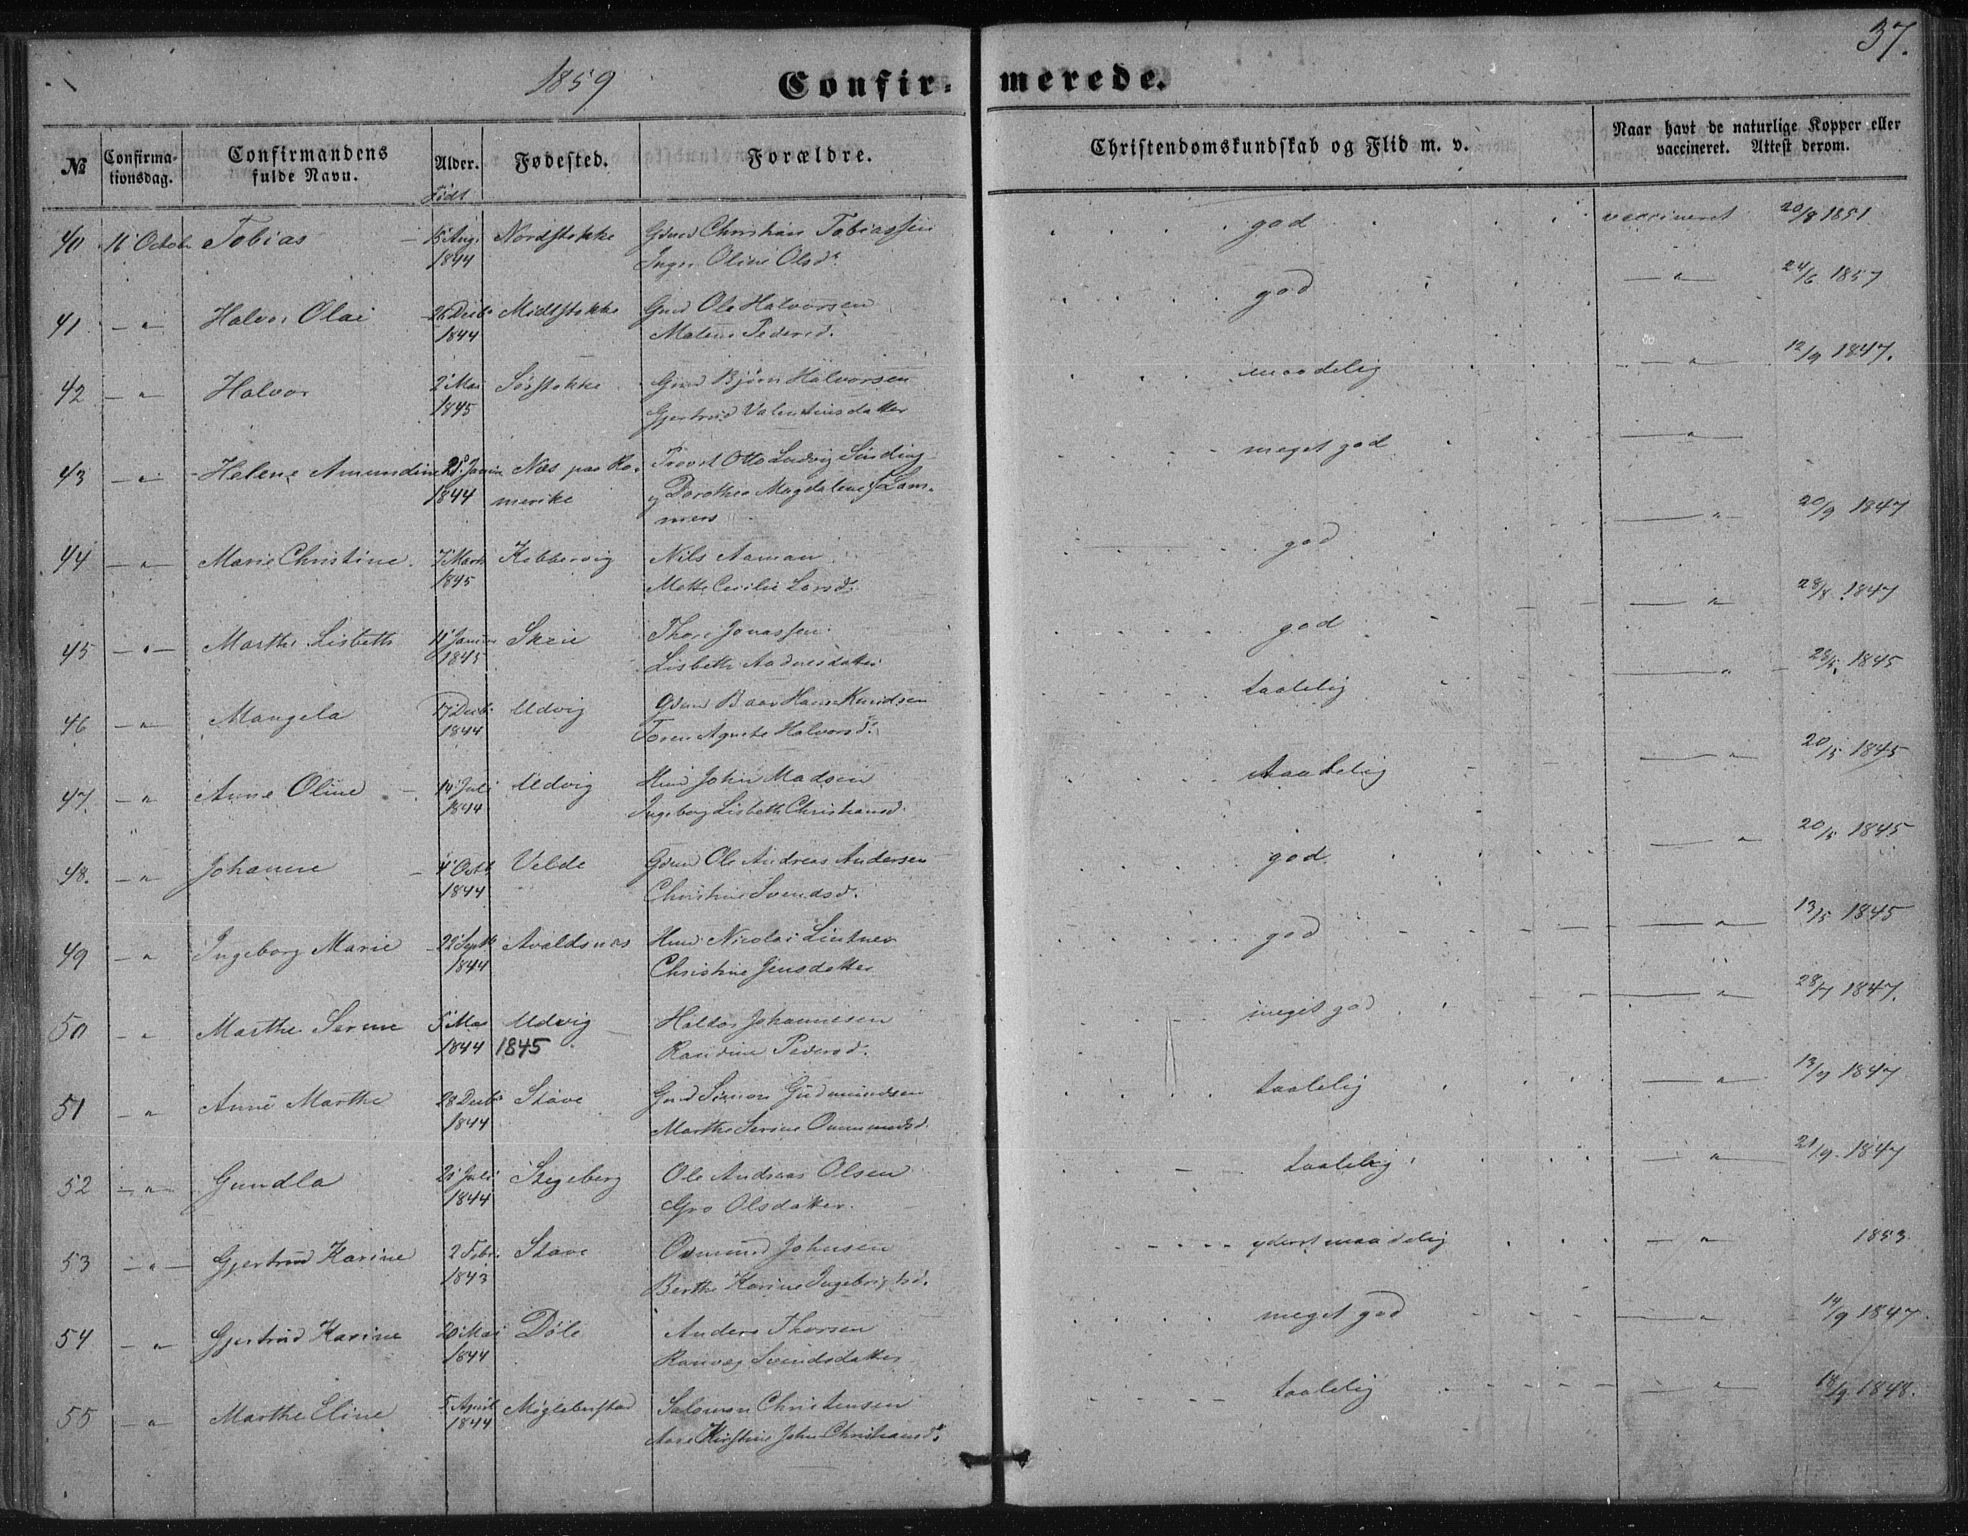 37.
1859
Confirmerede.
№ Confirmationsdag. Confirmandens fulde Navn. Alder. Fødested. Forældre. Christendomskundskab og Flid m. v. Naar havt de naturlige Kopper eller vaccineret. Attest derom.
Født
40 16 Octob. Tobias 15 Aug. Nordstokke Gmd Christian Tobiassen god vaccineret 20/8 1851
1844 Inger Oline Olsd.
41 — " — Halvor Olai Decb. Midtstokke Gmd Ole Halvorsen god — " — 24/6 1857
1844 Pedersd.
42 — " — Halvor 2 Mai Søstokke Gmd Bjørn Halvorsen maadelig — " — 12/9 1847.
1845 Gjertrud Valentinsdatter
43 — " — Helene Amundine Næs paa Ro- Provst Otto Ludvig Sinding meget god — " —
1844 merike og Dorothea Magdalene Lam-
mers
44 — " — Marie Christine. 7 Marts Kobbervig Nils Aaman god — " — 20/9 1847
1845 Mette Cecilie Larsd.
45 — " — Marthe Lisbeth Skeie Thore Jonassen god — " — 28/8 1847
1845 Lisbeth
46 — " — Mangela 17 Decb. Udvig Hans Knudsen taalelig — " — 1845
1844 Toren Agnete Halvorsd.
47. — " Anne Oline 14 Juli Udvig Hmd John Madsen taalelig — " — 20/5 1845
1844 Ingeborg Lisbeth Christiansd.
48. — " Johanne 4 Octb. Velde Gmd Ole Andreas Andersen god — " — 20/5 1845
1844 Christine Svendsd.
49 — " Ingeborg Marie Septb Avaldsnæs Hmd Nicolai Lintner god — " — 13/5 1845
1844 Christine Jensdatter
50 " Marthe Serine 5 Mai Udvig Haldor Johannesen meget god — " — 28/7 1847.
1844 1845 Randine Pedersd.
51 " Anne Marthe 28 Decb. Stave Gmd Simon Gudmundsen taalelig — " — 13/9 1847
1844 Marthe Serine
52 — " — Gundla Juli Stegeberg Ole Andreas Olsen taalelig — " — 21/9 1847
1844 Gro Olsdatter.
53 — " — Gjertrud Karine 2 Febr. Stave Osmund Johnsen yderst maadelig — " — 1853
1843 Berthe Karine Ingebrigtsd.
54 — " Gjertrud Karine 20 Mai Døle Anders Thorsen meget god — " — 14/9 1847
1844 Ranveg Svendsdatter
55 — " Marthe Eline 5 April Møglebustad Salomon Christensen taalelig — " — 1848.
1844 Kirstine John Christiansd.